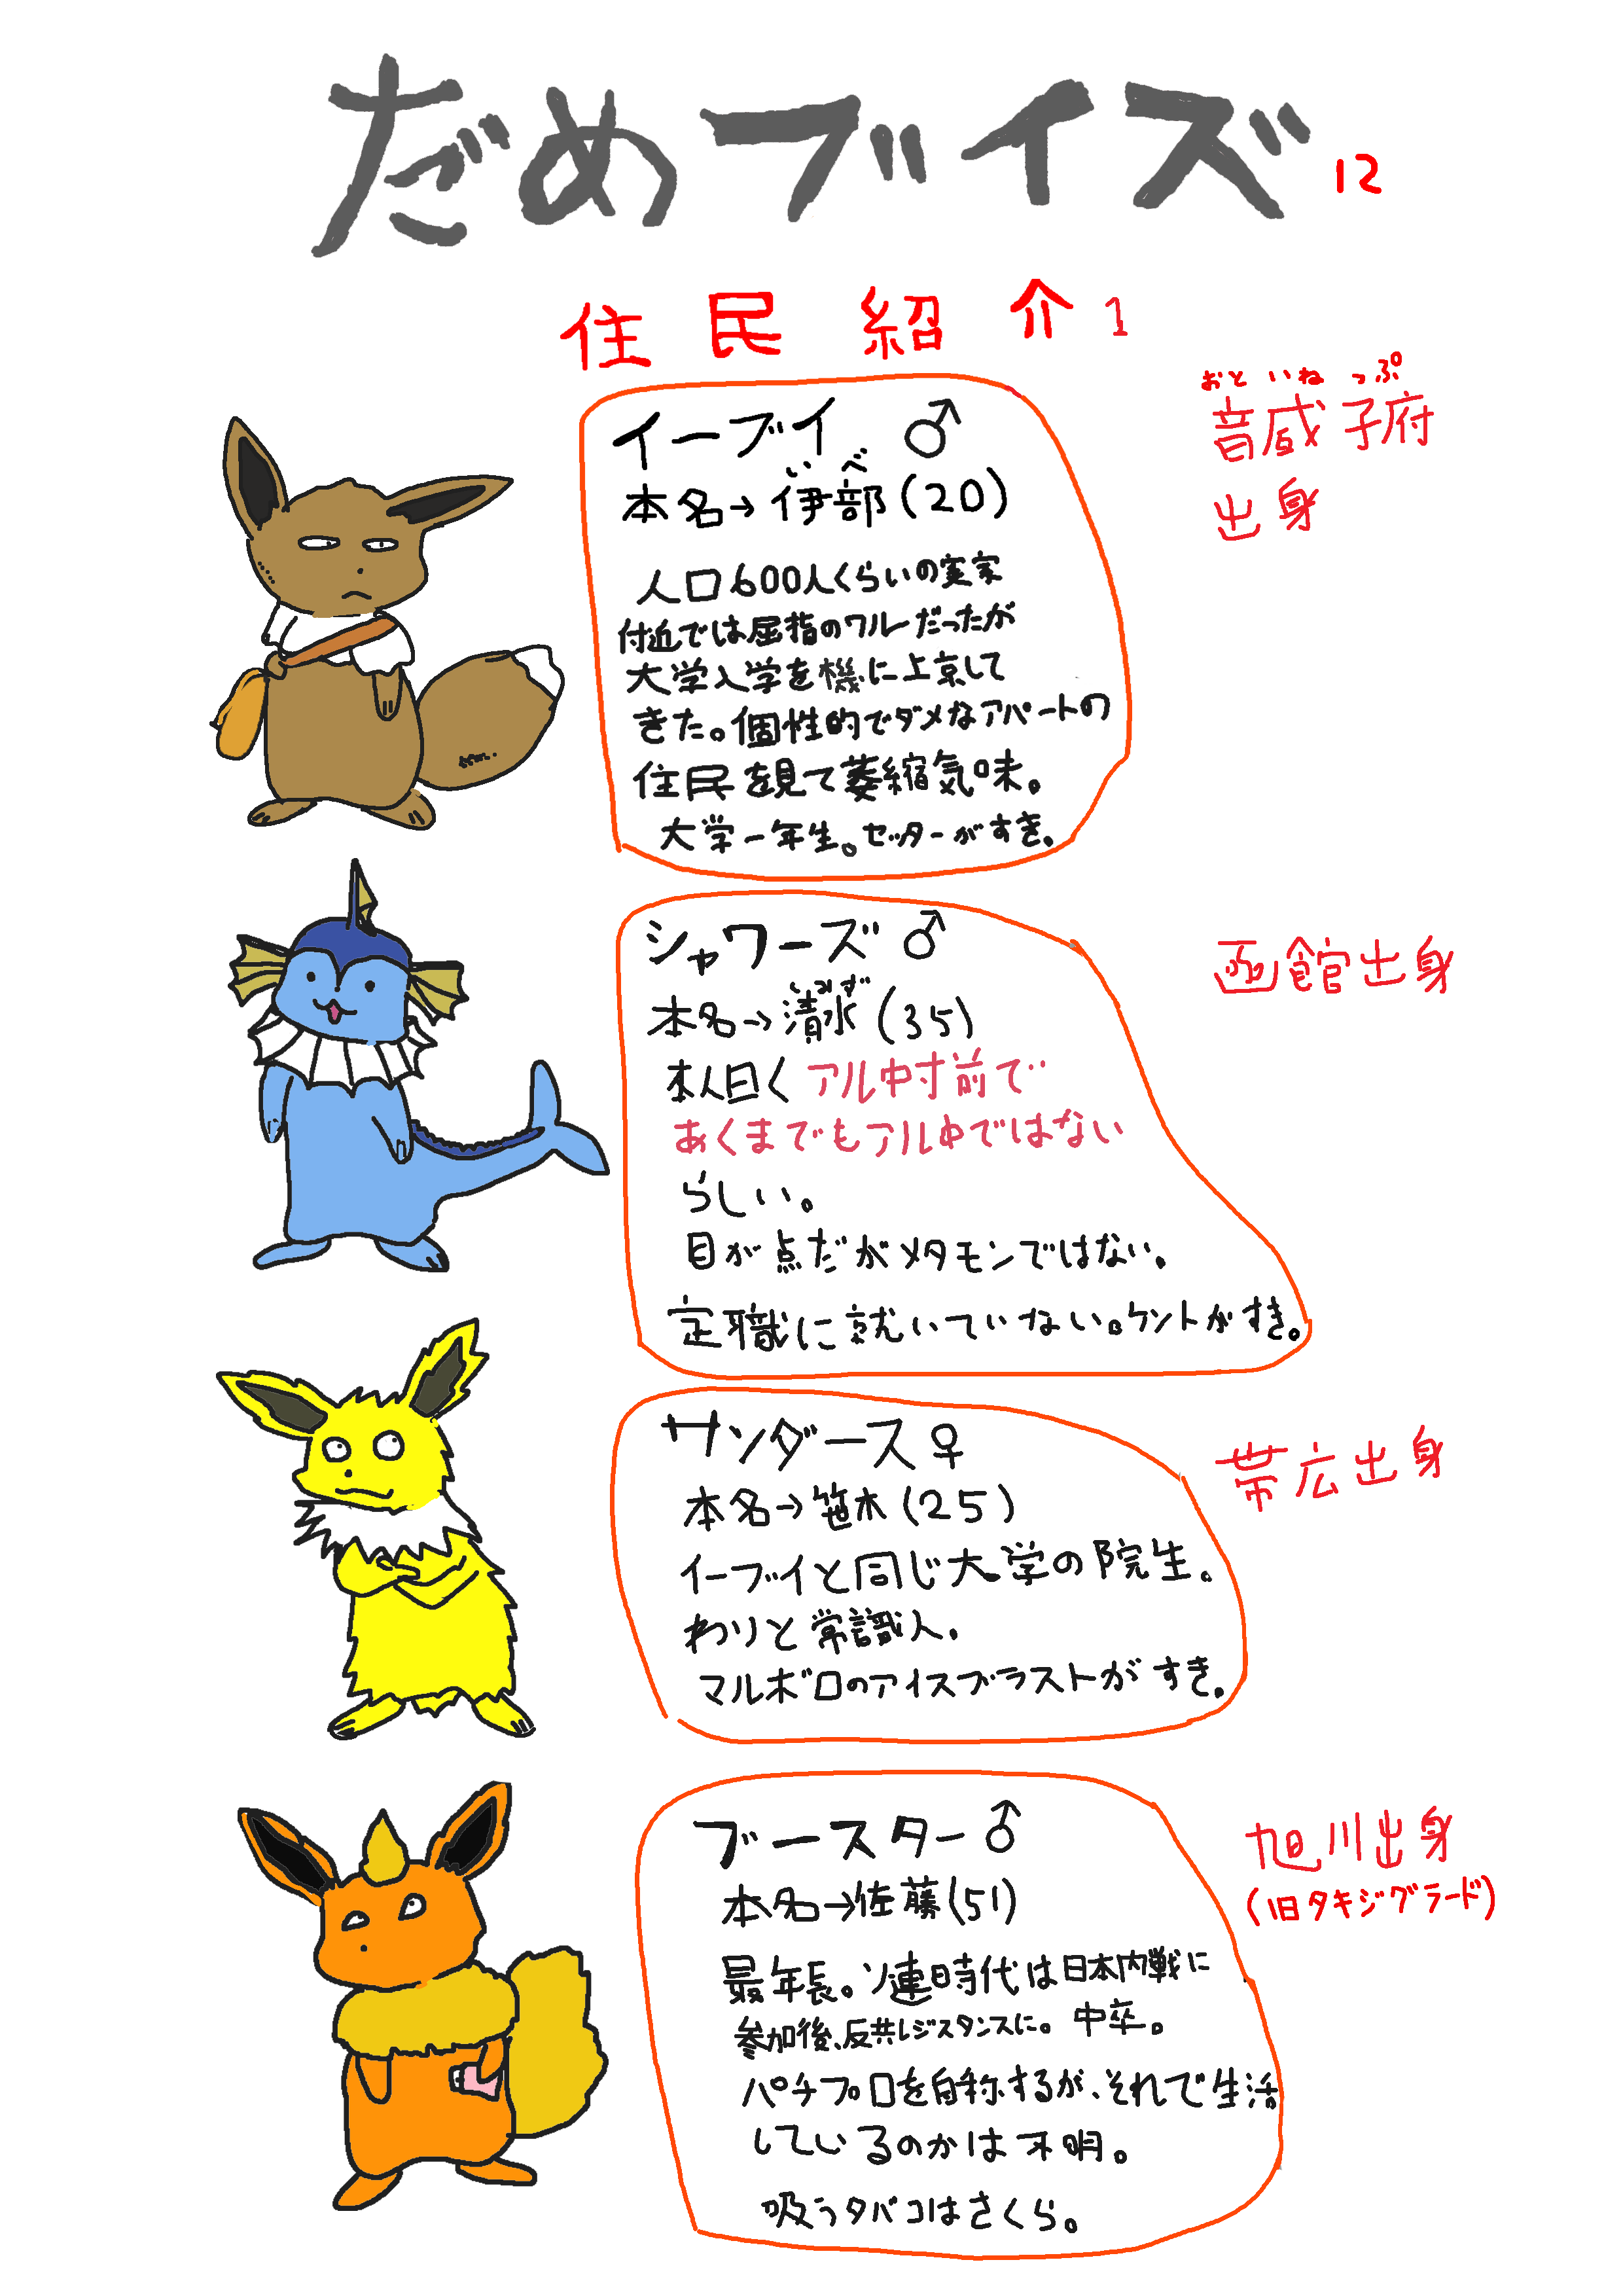 だめブイズ 12
住民紹介 1
イーブイ ♂
いべ
本名→伊部(20)
人口600人くらいの実家
付近では屈指のワルーだったが
大学入学を機に上京して
きた。個性的でダメなアパートの
住民を見て萎縮気味。
大学一年生。セッターがすき。
おといねっぷ
音威子府
出身
シャワーズ ♂
しみず
本名→清水(35)
本人曰くアル中寸前で
あくまでもアル中ではない
らしい。
目が点だがメタモンではない。
定職に就いていない。ケントがすき。
函館出身
サンダース ♀
本名→笹木(25)
イーブイと同じ大学の院生。
わりと常識人。
マルボロのアイスブラストがすき。
帯広出身
ブースター ♂
本名→佐藤(51)
最年長。ソ連時代は日本内戦に
参加後、反共レジスタンスに。中卒。
パチプロを自称するが、それで生活
しているのかは不明。
吸うタバコはさくら。
旭川出身
(旧タキジグラード)